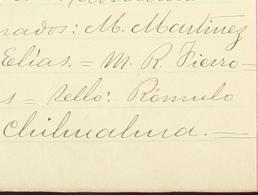 rados: M. Martinez
Elías. = M. R. Fierro -
s = sello: Rómulo
Chihualma. =